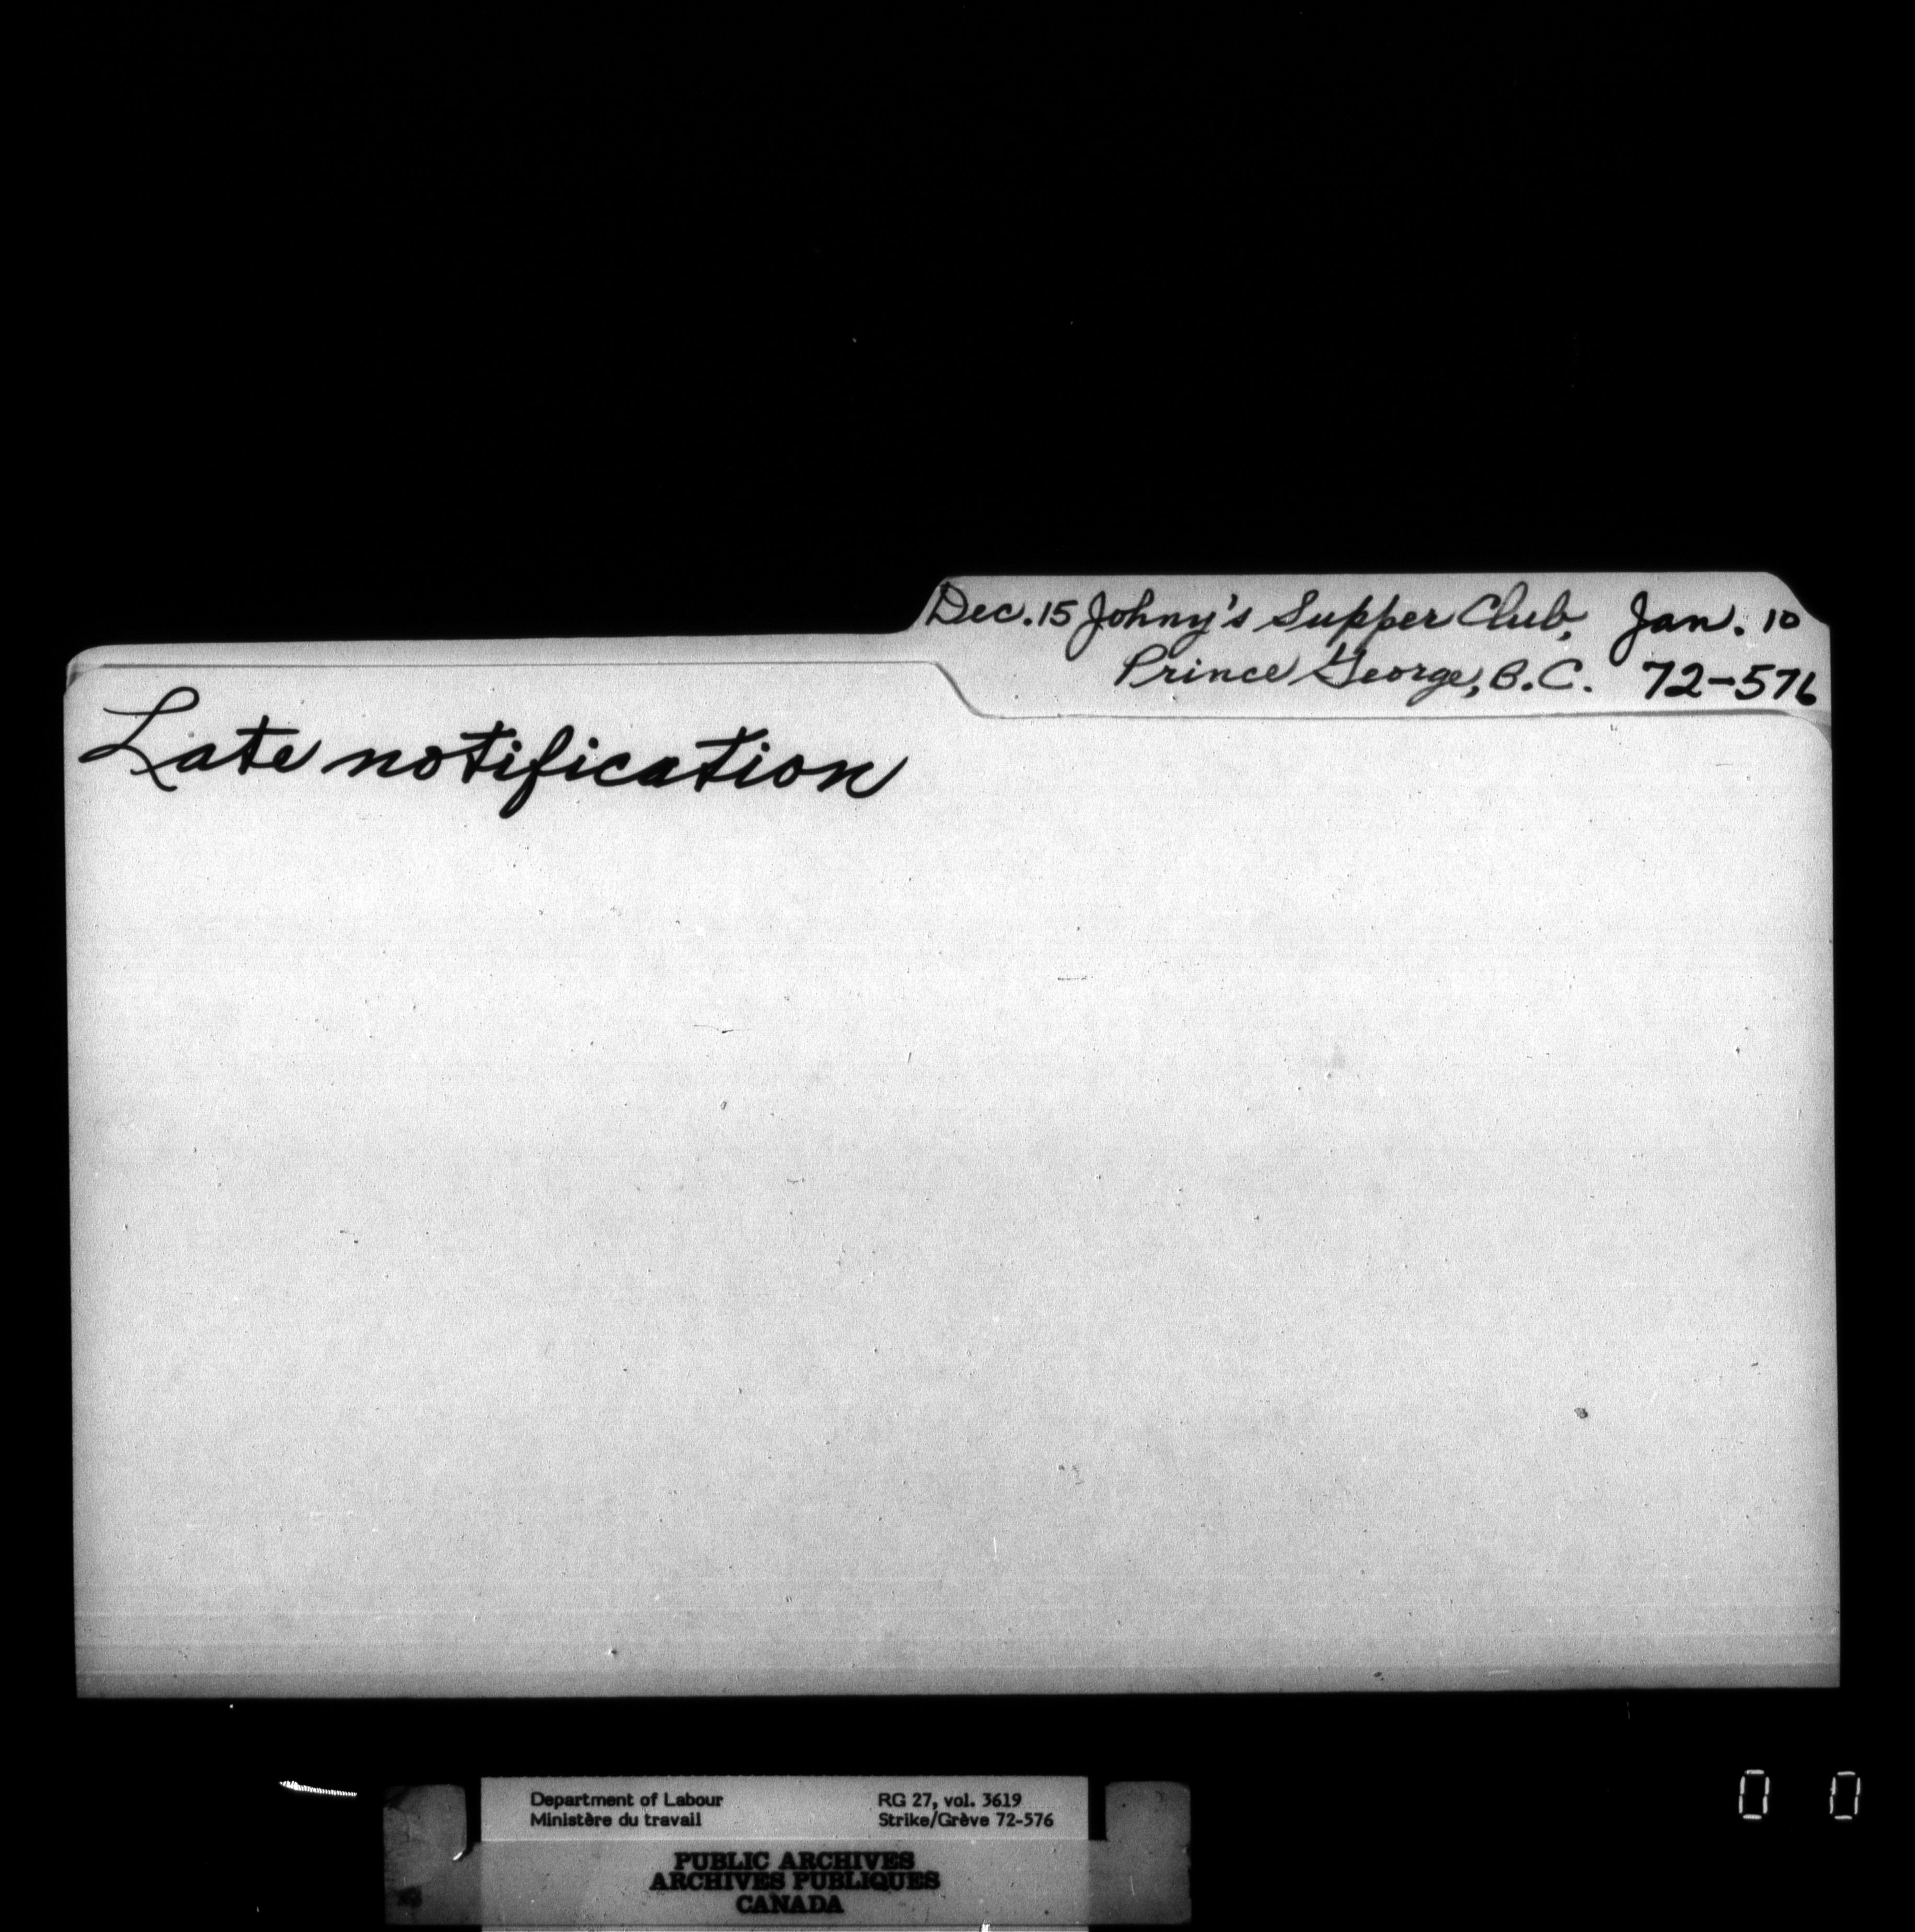 Dec. 15 Johny's Supper Club, Jan. 10
Prince George, B.C. 72-576
Late notification
Department of Labour RG 27, vol. 3619
Ministère du travail Strike/Grève 72-576
PUBLIC ARCHIVES
ARCHIVES PUBLIQUES
CANADA
0 0